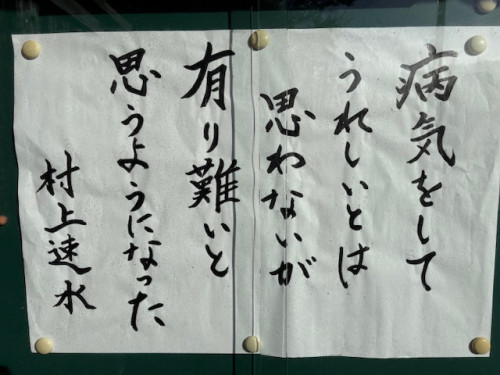 病気をして
うれしいとは
思わないが
有り難いと
思うようになった
村上速水